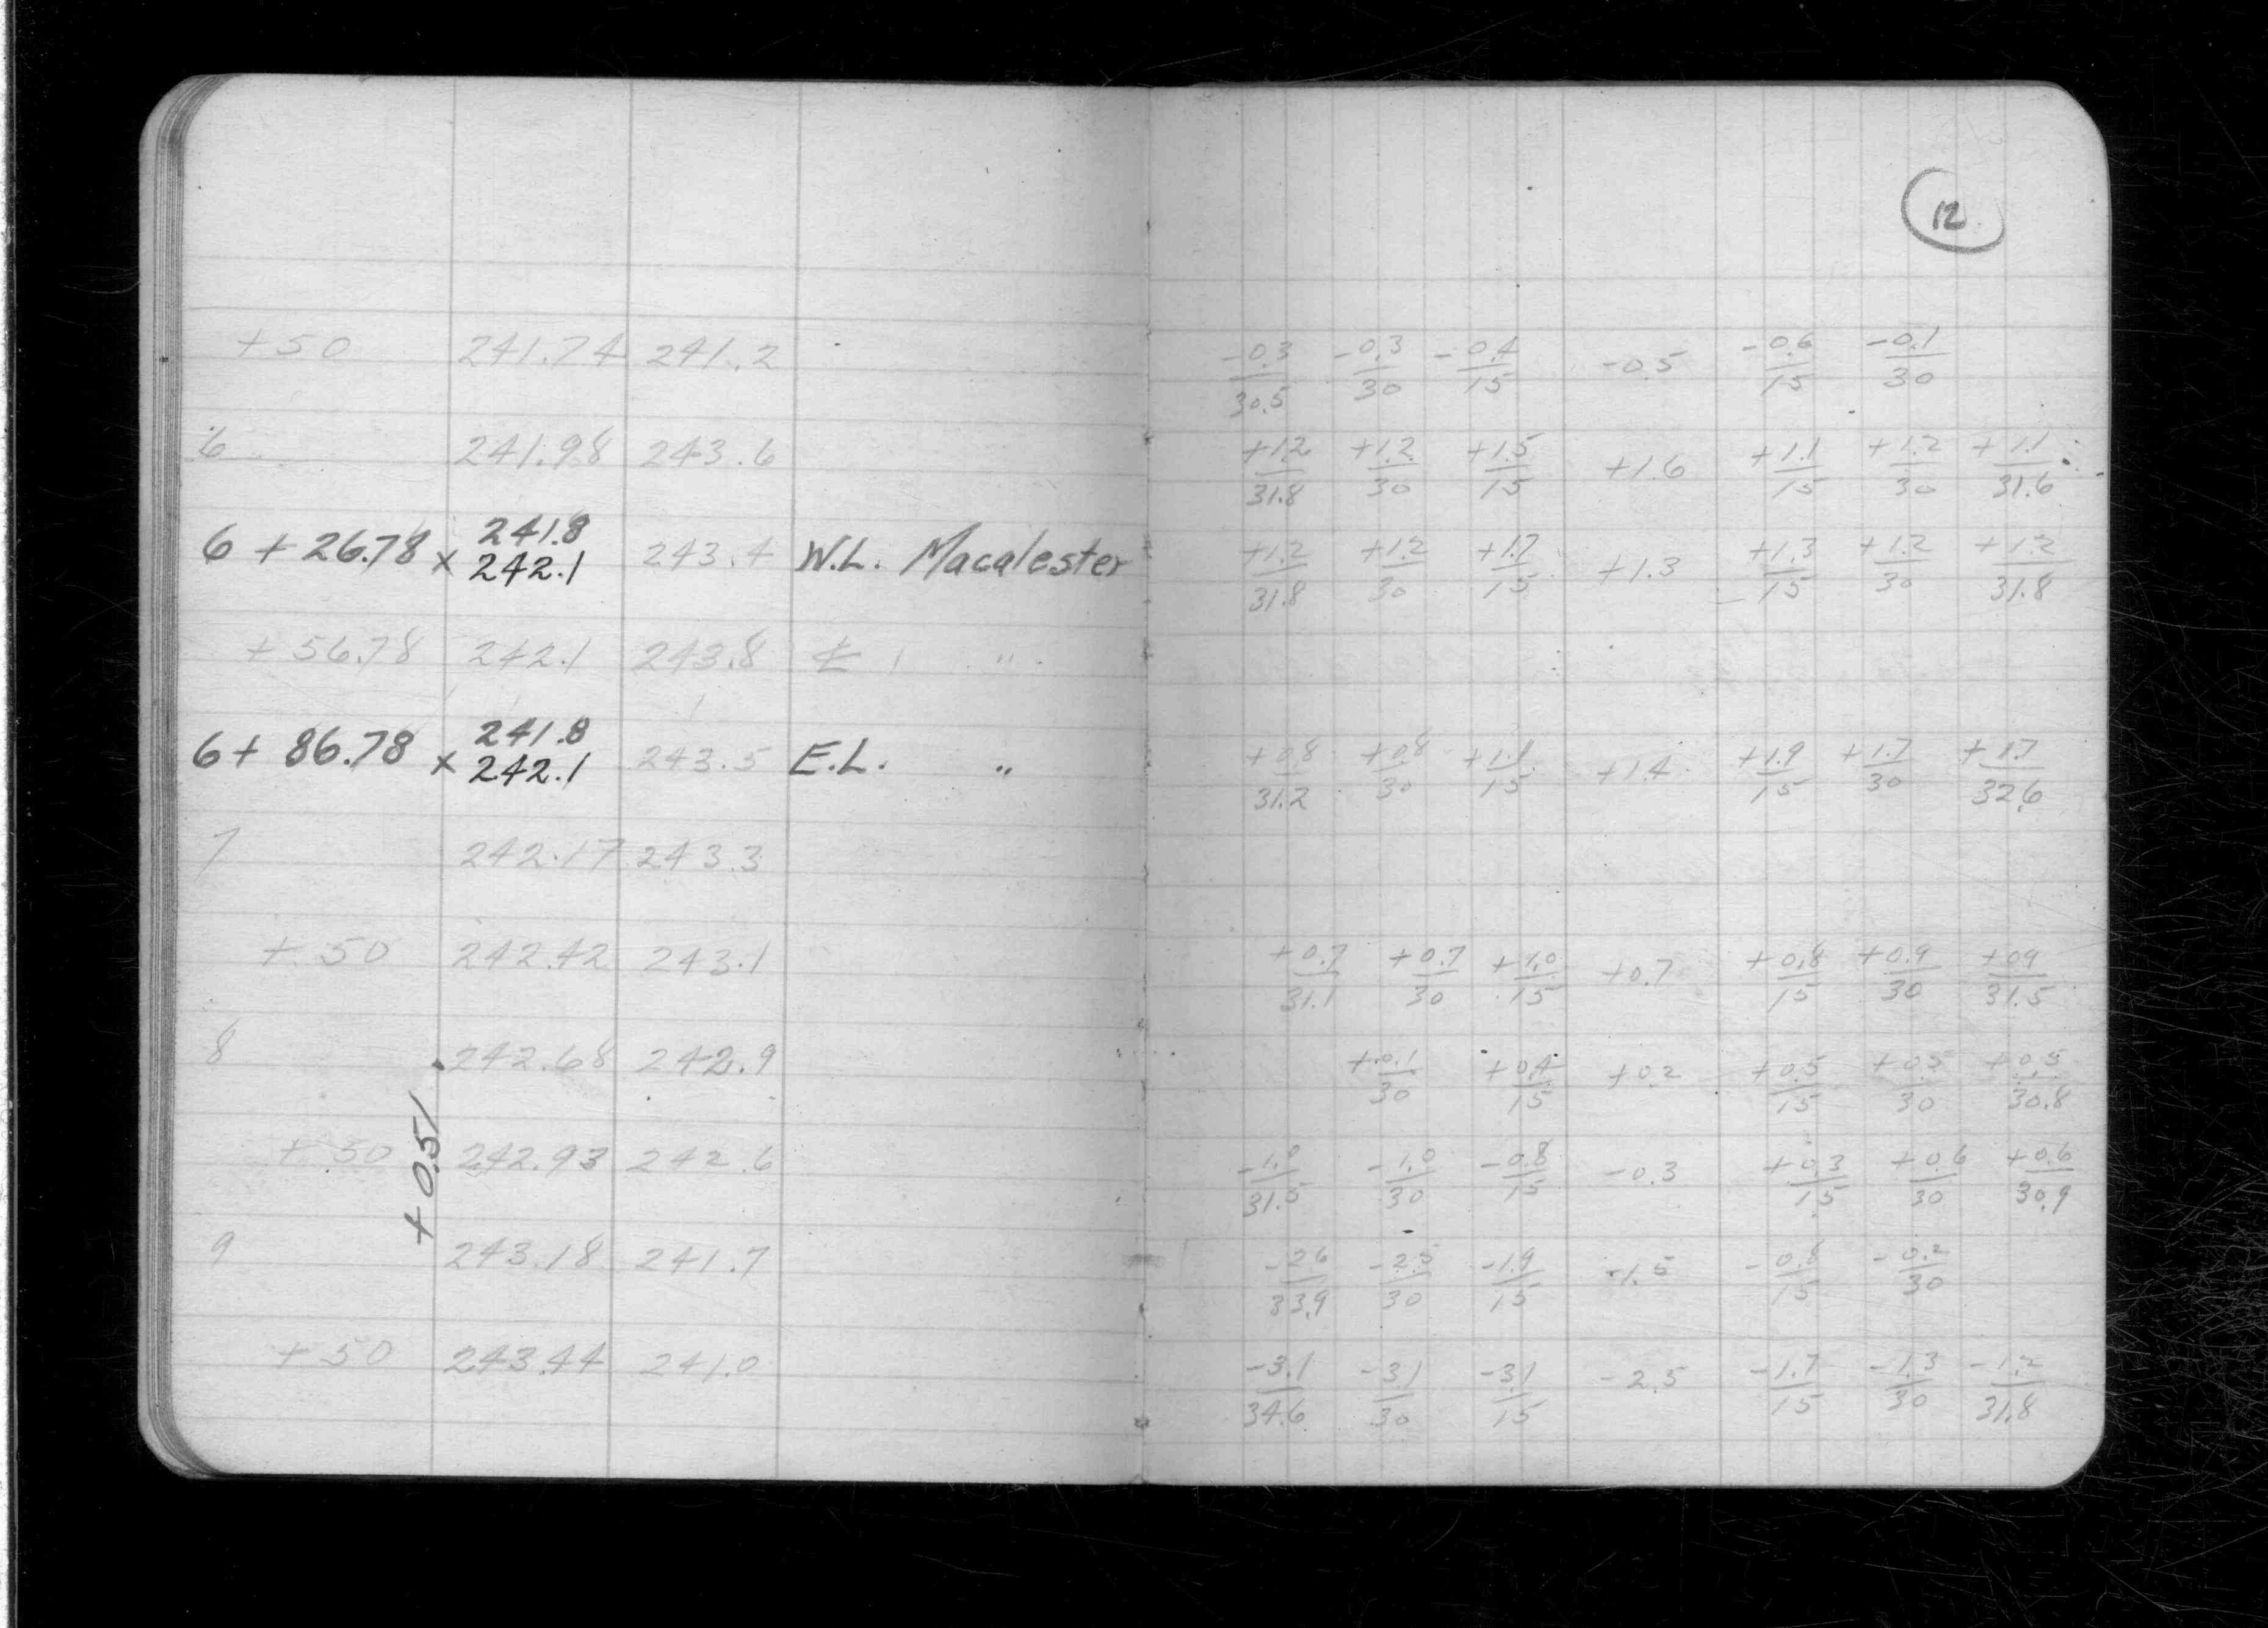 12
+50 241.74 241.2 -0.3/30.5 -0.3/30 -0.4/15 -0.5 -0.6/15 -0.1/30
6 241.98 243.6 +1.2/31.8 +1.2/30 +1.5/15 +1.6 +1.1/15 +1.2/30 +1.1/31.6
241.8
6 + 26.78 x 242.1 243.4 W.L. Macalester +1.2/31.8 +1.2/30 +1.7/15 +1.3 +1.3/15 +1.2/30 +1.2/31.8
+56.78 242.1 243.8 ℄ "
241.8
6 + 86.78 x 242.1 243.5 E.L. " +0.8/31.2 +0.8/30 +1.1/15 +1.4 +1.9/15 +1.7/30 +1.7/32.6
7 242.17 243.3
+50 242.42 243.1 +0.7/31.1 +0.7/30 +1.0/15 +0.7 +0.8/15 +0.9/30 +09/31.5
8 242.68 242.9 +0.1/30 +0.4/15 +0.2 +0.5/15 +0.5/30 +0.5/30.8
+0.51
+50 242.93 242.6 -1.0/31.5 -1.0/30 -0.8/15 -0.3 +0.3/15 +0.6/30 +0.6/30.9
9 243.18 241.7 -2.6/33.9 -2.5/30 -1.9/15 -1.5 -0.8/15 -0.2/30
+50 243.44 241.0 -3.1/34.6 -3.1/30 -3.1/15 -2.5 -1.7/15 -1.3/30 -1.2/31.8